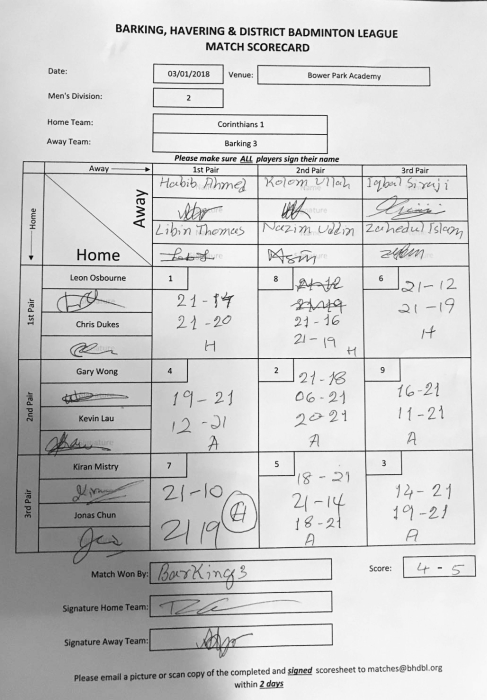 BARKING, HAVERING & DISTRICT BADMINTON LEAGUE
MATCH SCORECARD
Date: 03/01/2018 Venue: Bower Park Academy
Men's Division: 2
Home Team: Corinthians 1
Away Team: Barking 3
Please make sure ALL players sign their name
Away 1st Pair 2nd Pair 3rd Pair
Habib Ahmed Kolom Ullah Iqbal Siraji
Home Away
Libin Thomas Nazim Uddin Zahedul Islam
Home
1st Pair
Leon Osbourne 1 8 6
21-12
21-17 21-19
Chris Dukes 21-20 21-16
21-19
H H H
2nd Pair
Gary Wong 4 2 9
21-18
19-21 06-21 16-21
Kevin Lau 12-21 20-21 11-21
A A A
3rd Pair
Kiran Mistry 7 5 3
18-21
21-10 21-14 14-21
Jonas Chun 21 19 H 18-21 19-21
A A
Match Won By: Barking 3 Score: 4 - 5
Signature Home Team:
Signature Away Team:
Please email a picture or scan copy of the completed and signed scoresheet to matches@bhdbl.org
within 2 days